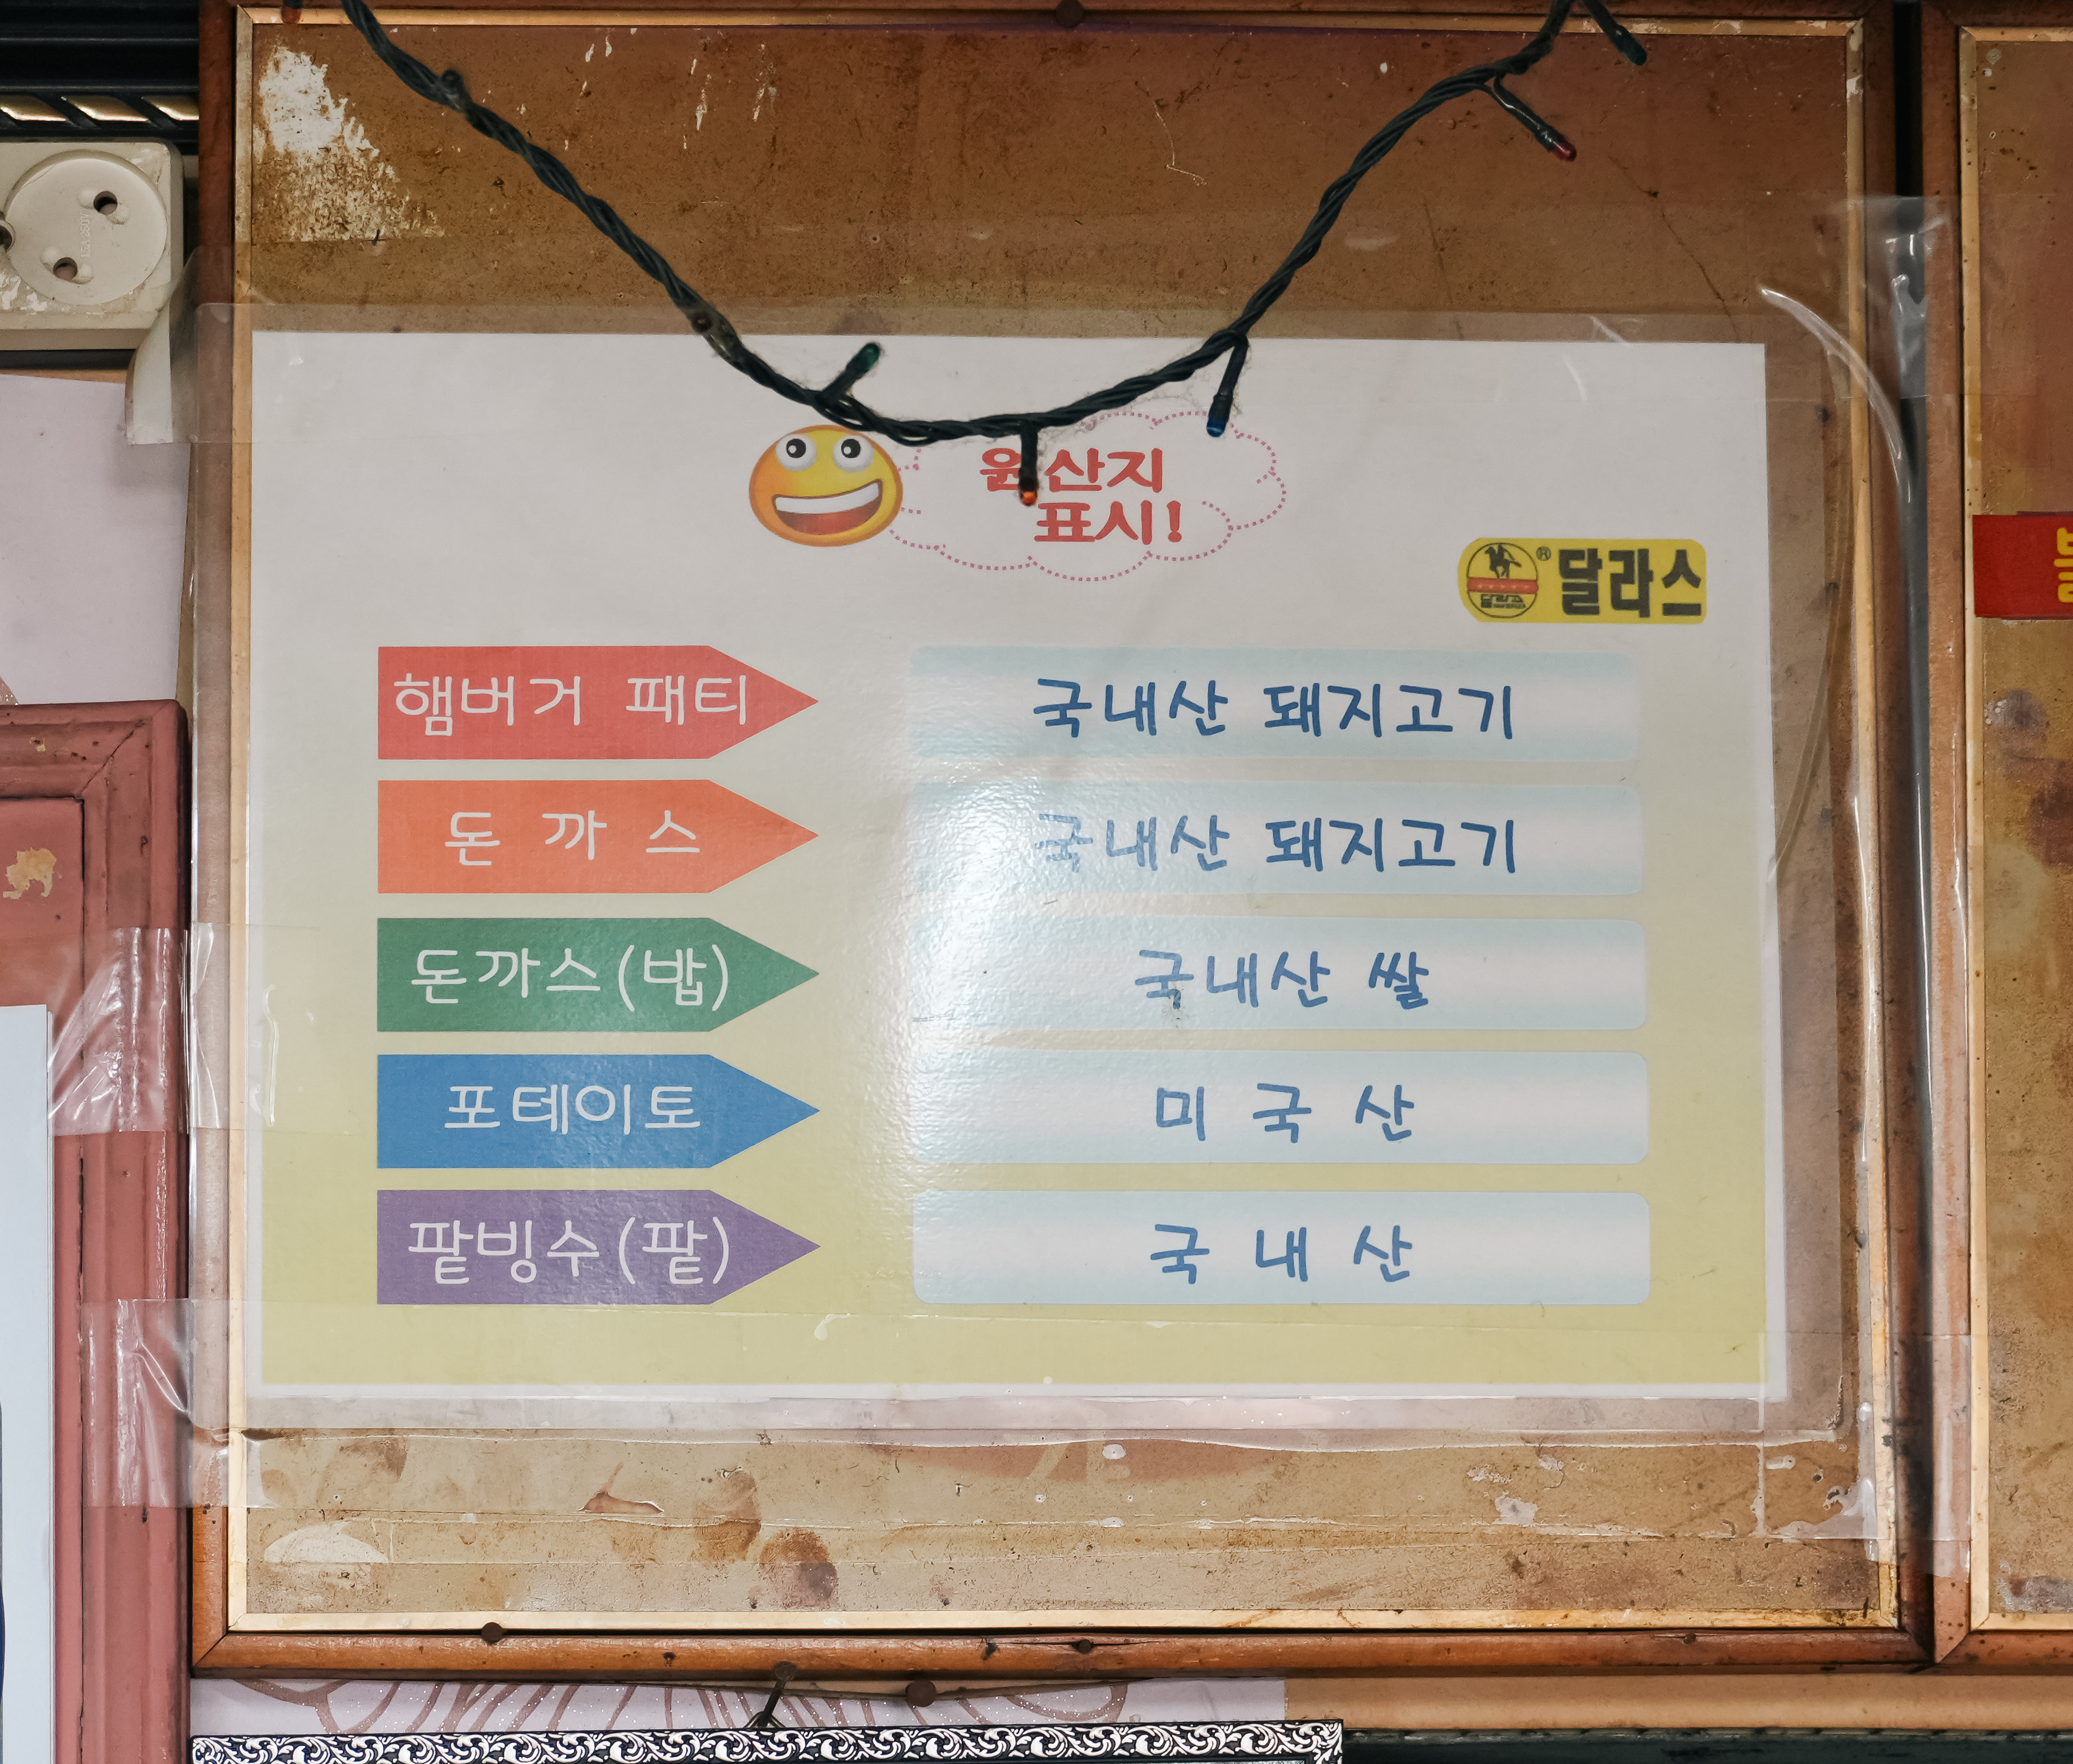 원산지
표시!
® 달라스
햄버거 패티 국내산 돼지고기
돈 까 스 국내산 돼지고기
돈까스(밥) 국내산 쌀
포테이토 미 국 산
팥빙수(팥) 국 내 산